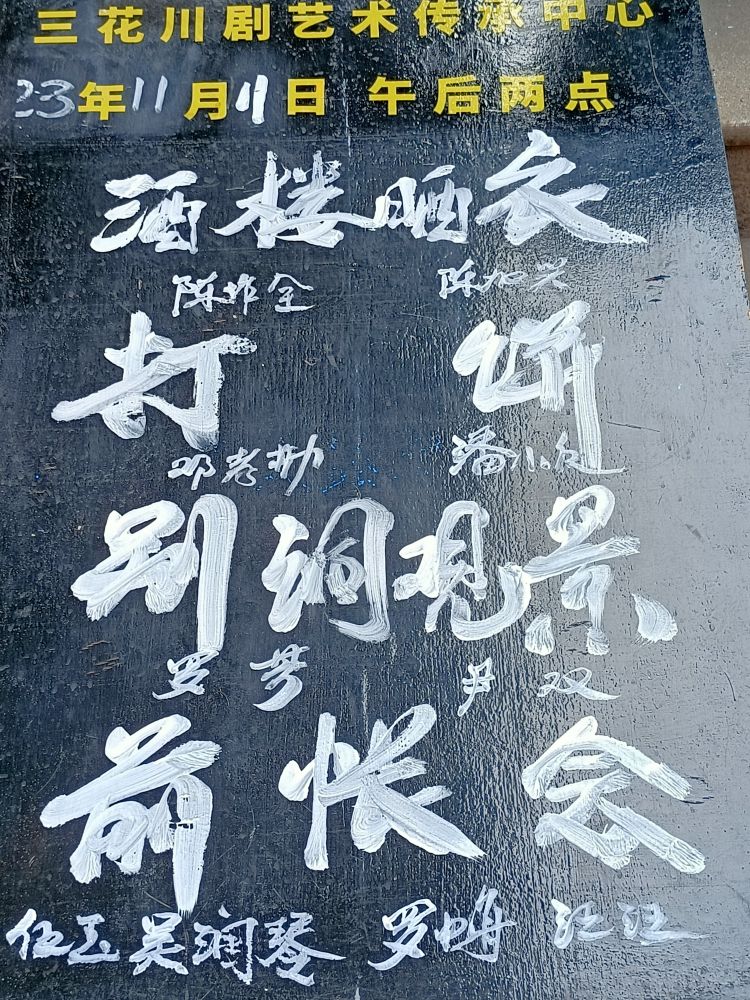 三花川剧艺术传承中心
23年11月11日 午后两点
酒楼晒衣
陈作全 陈加兴
打饼
邓老彬 潘小欠
别洞观景
罗芳 尹双
前帐会
伍玉 吴润琴 罗帅 江江